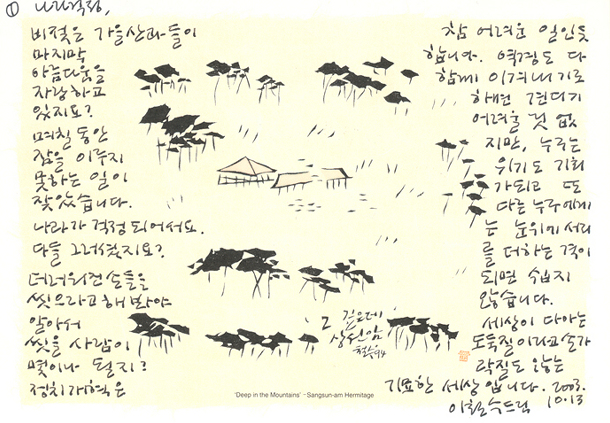 ① 나라걱정,
비젖은 가을산과들이
마지막
아름다움을
자랑하고
있지요?
며칠 동안
잠을 이루지
못하는 일이
잦았습니다.
나라가 걱정되어서요.
다들 그러셨지요?
더러워진 손들을
씻으라고 해 봐야
알아서
씻을 사람이
몇이나 될지?
정치개혁은
참 어려운 일인듯
합니다. 역경도 다
함께 이겨내기로
하면 견디기
어려울 것 없
지만, 누구는
위기도 기회
가 되고 또
다른 누구에게
는 눈위에 서리
를 더하는 격이
되면 쉽지
않습니다.
세상이 다 아는
도둑질이라고 손가
락질도 않는
기묘한 세상 입니다. 2003.
10.13
이철수드림
그 깊은데
상선암
철수94
'Deep in the Mountains' - Sangsun-am Hermitage